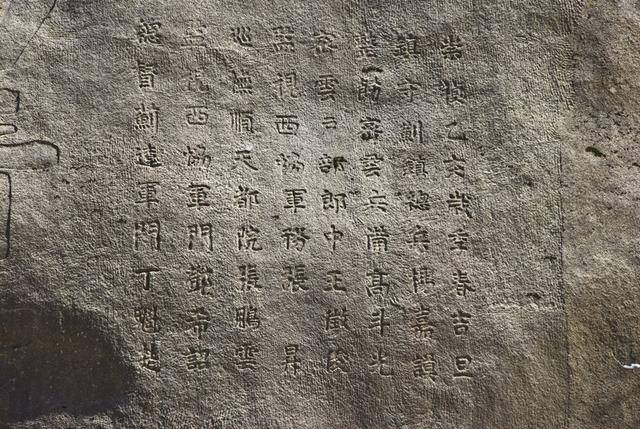 總督薊遼軍門丁魁楚
監視西協軍門鄧希詔
巡撫順天都院張鵬雲
監視西協軍務張昇
密雲戶部郎中王
整飭密雲兵備高斗光
鎮守薊鎮總兵嘉謨
崇禎乙亥歲季春吉旦